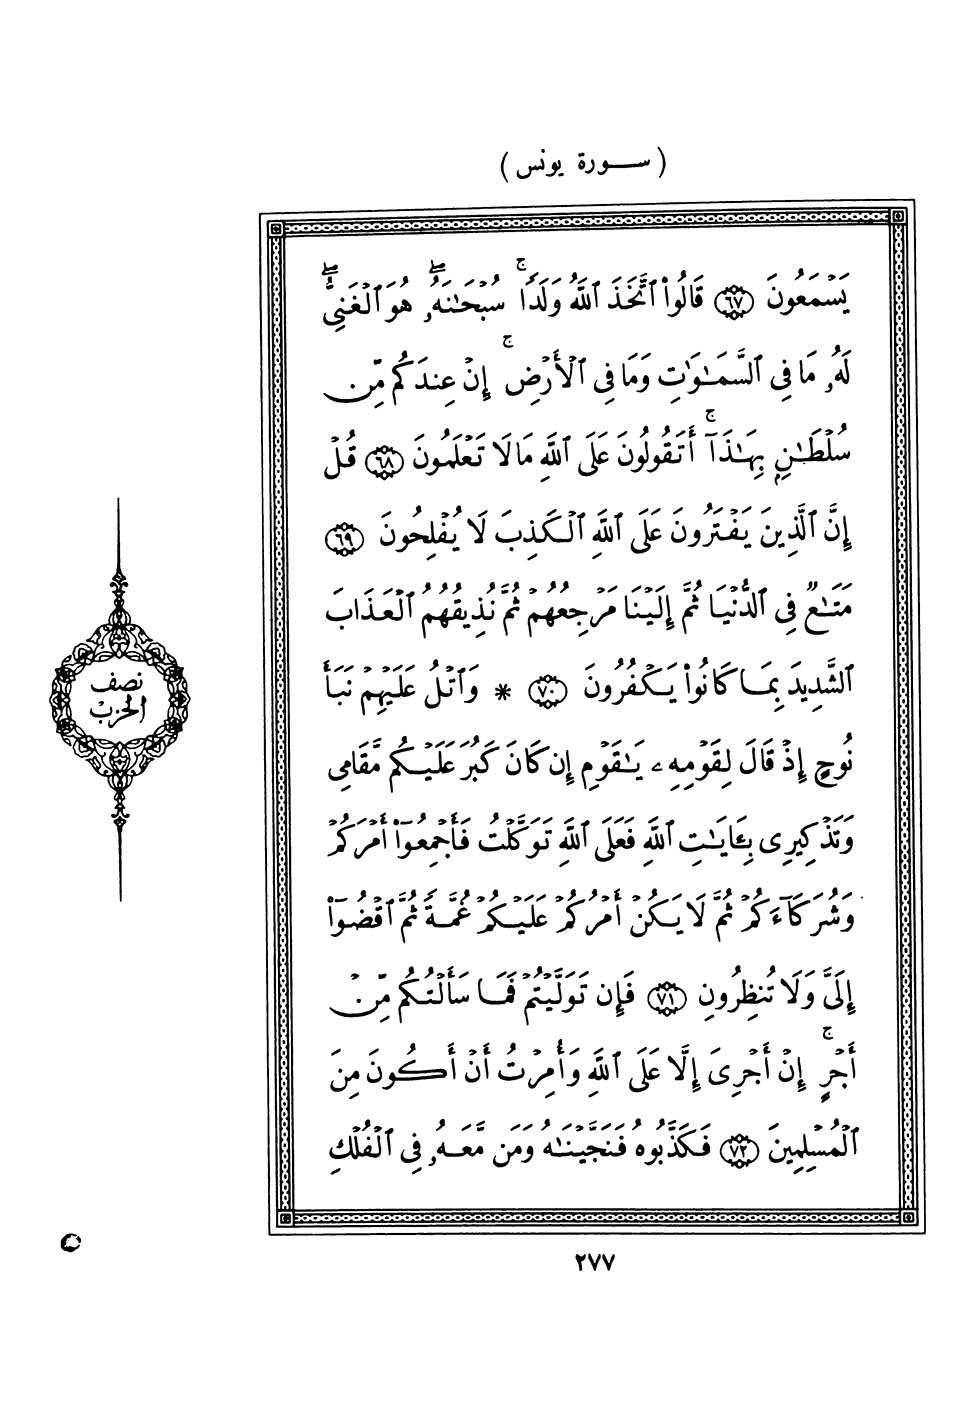 ( سورة يونس )
يَسۡمَعُونَ ٦٧ قَالُواْ ٱتَّخَذَ ٱللَّهُ وَلَدٗاۚ سُبۡحَٰنَهُۥۖ هُوَ ٱلۡغَنِيُّۖ
لَهُۥ مَا فِي ٱلسَّمَٰوَٰتِ وَمَا فِي ٱلۡأَرۡضِۚ إِنۡ عِندَكُم مِّن
سُلۡطَٰنِۭ بِهَٰذَآۚ أَتَقُولُونَ عَلَى ٱللَّهِ مَا لَا تَعۡلَمُونَ ٦٨ قُلۡ
إِنَّ ٱلَّذِينَ يَفۡتَرُونَ عَلَى ٱللَّهِ ٱلۡكَذِبَ لَا يُفۡلِحُونَ ٦٩
مَتَٰعٞ فِي ٱلدُّنۡيَا ثُمَّ إِلَيۡنَا مَرۡجِعُهُمۡ ثُمَّ نُذِيقُهُمُ ٱلۡعَذَابَ
ٱلشَّدِيدَ بِمَا كَانُواْ يَكۡفُرُونَ ٧٠ * وَٱتۡلُ عَلَيۡهِمۡ نَبَأَ
نُوحٍ إِذۡ قَالَ لِقَوۡمِهِۦ يَٰقَوۡمِ إِن كَانَ كَبُرَ عَلَيۡكُم مَّقَامِي
وَتَذۡكِيرِي بِـَٔايَٰتِ ٱللَّهِ فَعَلَى ٱللَّهِ تَوَكَّلۡتُ فَأَجۡمِعُوٓاْ أَمۡرَكُمۡ
وَشُرَكَآءَكُمۡ ثُمَّ لَا يَكُنۡ أَمۡرُكُمۡ عَلَيۡكُمۡ غُمَّةٗ ثُمَّ ٱقۡضُوٓاْ
إِلَيَّ وَلَا تُنظِرُونِ ٧١ فَإِن تَوَلَّيۡتُمۡ فَمَا سَأَلۡتُكُم مِّنۡ
أَجۡرٍۚ إِنۡ أَجۡرِيَ إِلَّا عَلَى ٱللَّهِ وَأُمِرۡتُ أَنۡ أَكُونَ مِنَ
ٱلۡمُسۡلِمِينَ ٧٢ فَكَذَّبُوهُ فَنَجَّيۡنَٰهُ وَمَن مَّعَهُۥ فِي ٱلۡفُلۡكِ
نصف
الحزب
٢٧٧